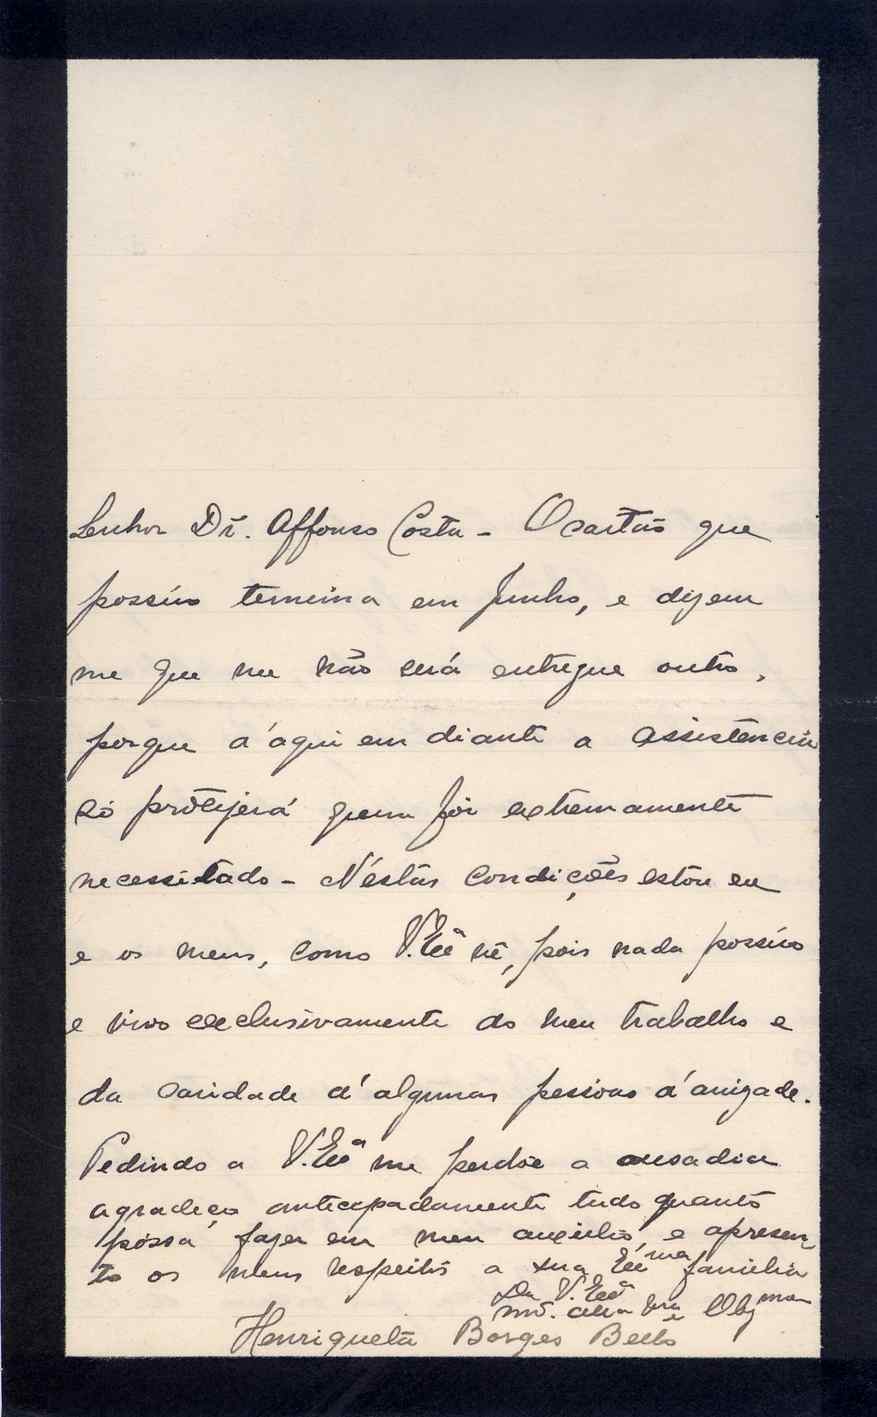 Senhor Dr. Affonso Costa - O cartão que
possúo termina em Junho, e dizem
me que me não será entregue outro,
porque d'aqui em diante a assistencia
só protijerá quem fôr extremamente
necessitado - N'éstas condições estou eu
e os meus, como V. Exª vê, pois nada possúo
e vivo exclusivamente do meu trabalho e
da caridade d'algumas pessoas d'amizade.
Pedindo a V. Exª me perdôe a ousadia
agradeço anticipadamente tudo quanto
póssa fazer em meu auxilio, e apresen-
to os meus respeitos a sua Exma familia
Da V. Exª
mto. Obgma
Henriqueta Borges Bello